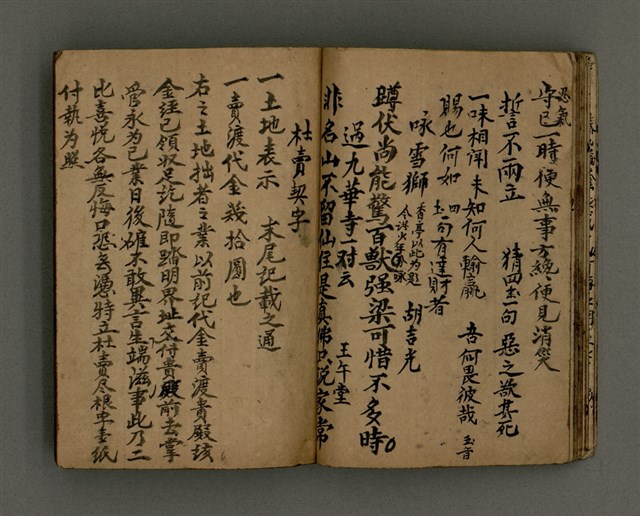 忍氣
守己一時便無事方纔便見消災
誓不兩立　猜四書一句　惡之欲其死
一味相鬪未知何人輸贏　吾何畏彼哉
賜也何如　四書一句有達財者
咏雪獅　胡吉光
蹲伏尚能驚百獸强梁可惜不多時
過九華寺一對云　王午堂
非名山不留仙住是真佛只説家常
杜賣契字
一土地表示　末尾記載之通
一賣渡代金幾拾圓也
右之土地拙者之業以前記代金賣渡貴殿該
金経已領収足訖隨即踏明界址交付貴殿前去掌
管永為己業日後雄不敢異言生端滋事此乃二
比喜悦各無反悔口恐無憑特立杜賣尽根字壹紙
付執為照